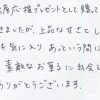 応援プレゼントとして贈って
きましたが、上品な甘さとし
も気に入り あっという間に
素敵なお菓子に出会え
ありがとうございます。